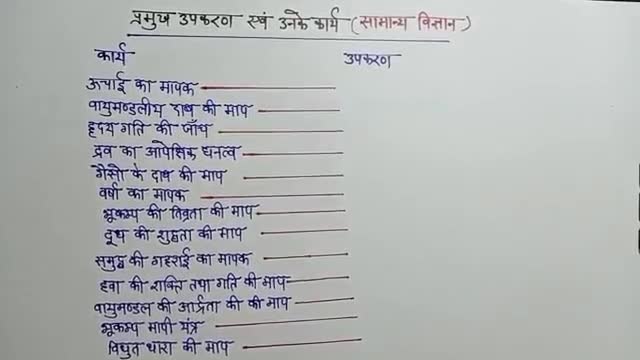 प्रमुख उपकरण एवं उनके कार्य (सामान्य विज्ञान)
कार्य उपकरण
ऊचाई का मापक
वायुमण्डलीय दाब की माप
हृदय गति की जाँच
द्रव का आपेक्षिक घनत्व
गैसो के दाब की माप
वर्षा का मापक
भूकम्प की तिव्रता की माप
दूध की शुद्धता की माप
समुद्र की गहराई का मापक
हवा की शक्ति तथा गति की माप
वायुमण्डल की आर्द्रता की की माप
भूकम्प मापी यंत्र
विधुत धारा की माप